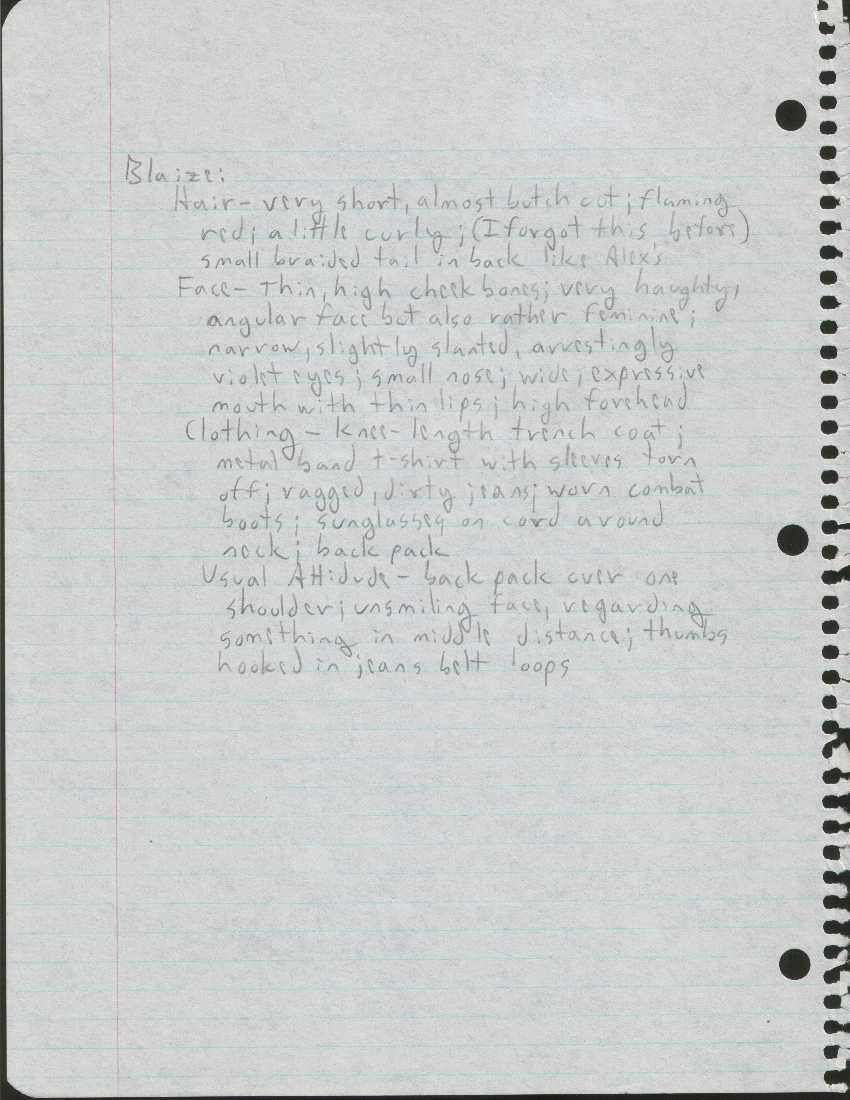 Blaize:
Hair- very short, almost butch cut; flaming
red; a little curly; (I forgot this before)
small braided tail in back like Alex's
Face- Thin, high cheek bones; very haughty,
angular face but also rather feminine;
narrow, slightly slanted, arrestingly
violet eyes; small nose; wide, expressive
mouth with thin lips; high forehead
Clothing - knee-length trench coat;
metal band t-shirt with sleeves torn
off; ragged, dirty jeans; worn combat
boots; sunglasses on cord around
neck; back pack
Usual Attidude- back pack over one
shoulder; unsmiling face, regarding
something in middle distance; thumbs
hooked in jeans belt loops